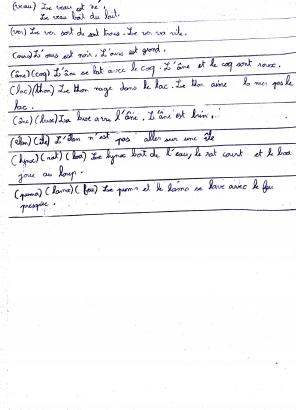 (veau) Le veau est né,
Le veau boit du lait.
(ver) Le ver sort de son trous. Le ver va vite.
(ours) L'ours est noir. L'ours est grand.
(âne)(coq) L'âne se bat avec le coq. L'âne et le coq sont roux.
(lac)(thon) Le thon nage dans le lac. Le thon aime la mer pas le
lac.
(âne)(buse) La buse L'âne est brun.
(élan)(île) L'élan n'est pas aller sur une île
(lynx)(rat)(boa) Le lynx boit de l'eau, le rat court et le boa
joue au loup.
(puma)(lama)(feu) Le puma et le lama se lave avec le feu
presque.